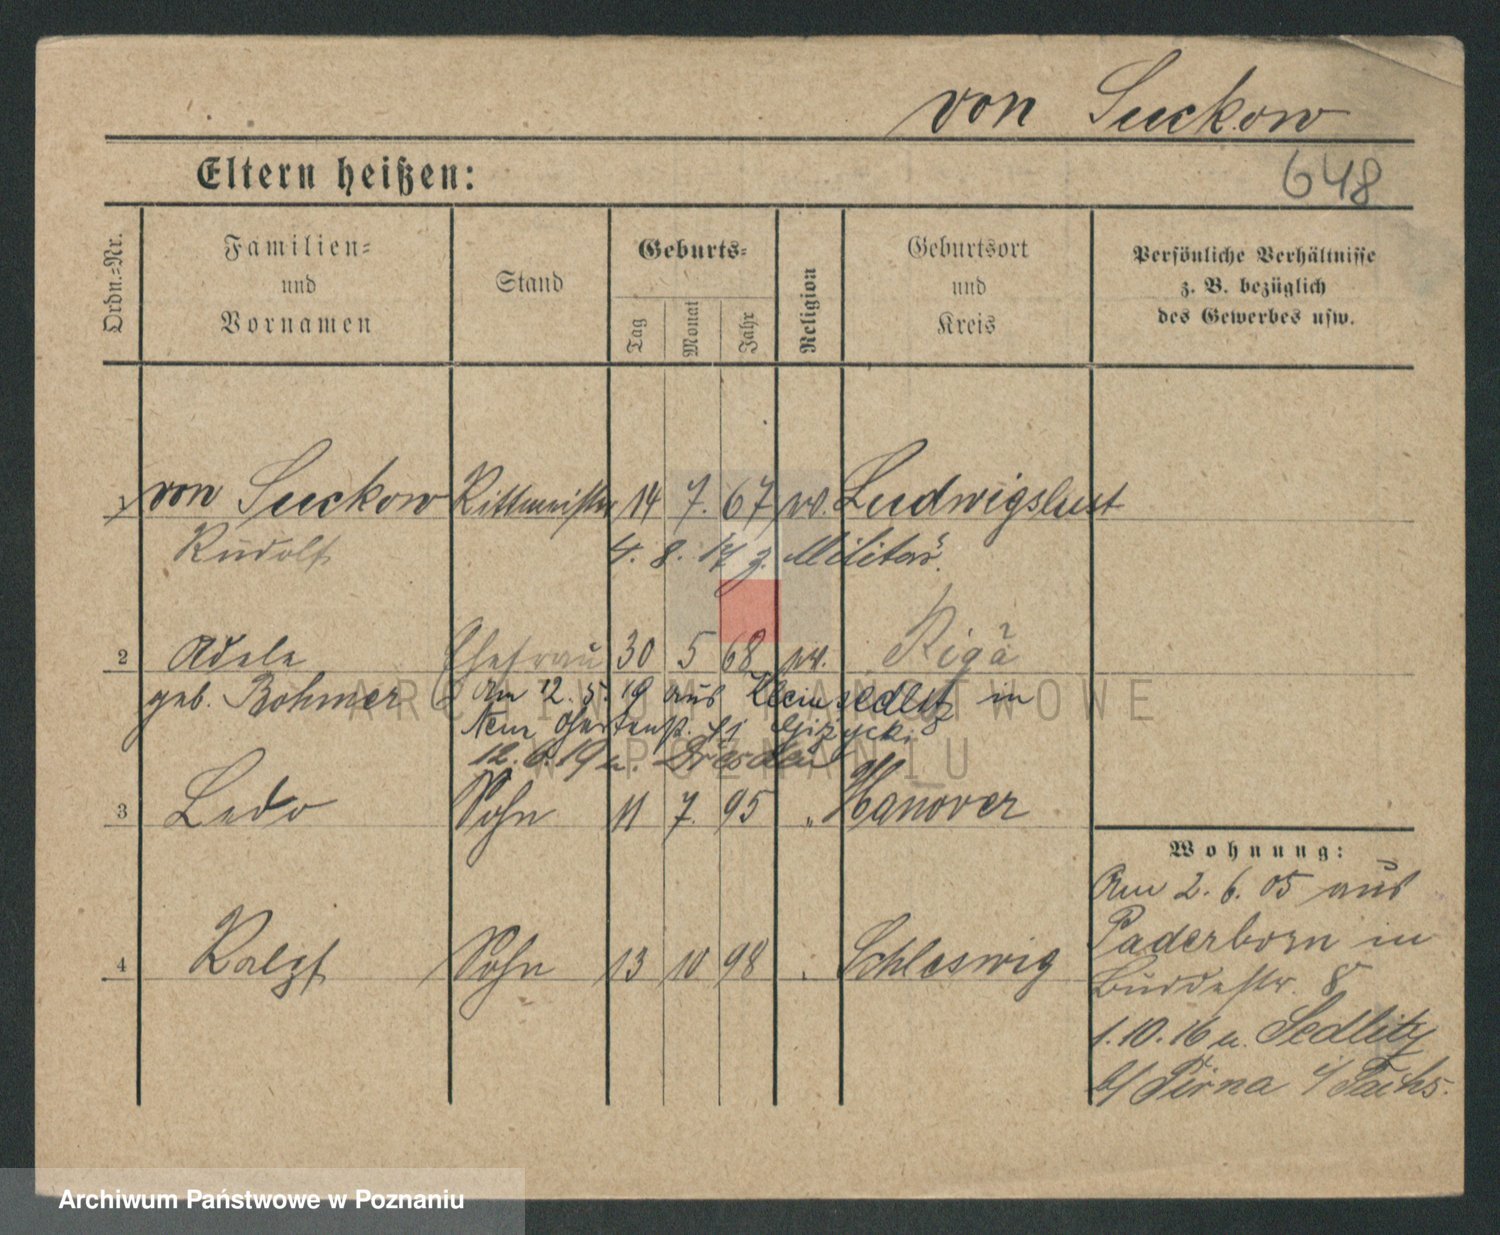 von Suckow
Eltern heißen:
648
Ordn.=Nr.
Familien=
und
Vornamen
Stand
Geburts=
Tag
Monat
Jahr
Religion
Geburtsort
und
Kreis
Persönliche Verhältnisse
z. B. bezüglich
des Gewerbes usw.
1 von Suckow Rittmeister 14 7. 67 ev. Ludwigslust
Rudolf
4. 8. 14 z. Militär.
2 Adele Ehefrau 30 5 68 ev. Riga
geb. Böhmer
Am 12. 5. 19 aus Kleinsedlitz in
b/ Gizycki
12. 6. 19 n. Dresden
3 Ledo Sohn 11 7. 95 „ Hanover
4 Ralpf Sohn 13 10 98 „ Schleswig
Wohnung:
Am 2. 6. 05 aus
Paderborn in
8
1. 10. 16 n. Sedlitz
b/ Pirna i/ Sachs.
ARCHIWUM PAŃSTWOWE
W POZNANIU
Archiwum Państwowe w Poznaniu